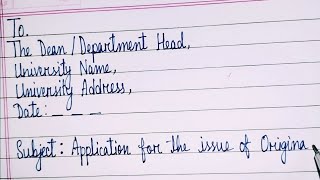 To,
The Dean/Department Head,
University Name,
University Address,
Date: _ _ _
Subject: Application for the issue of Origina